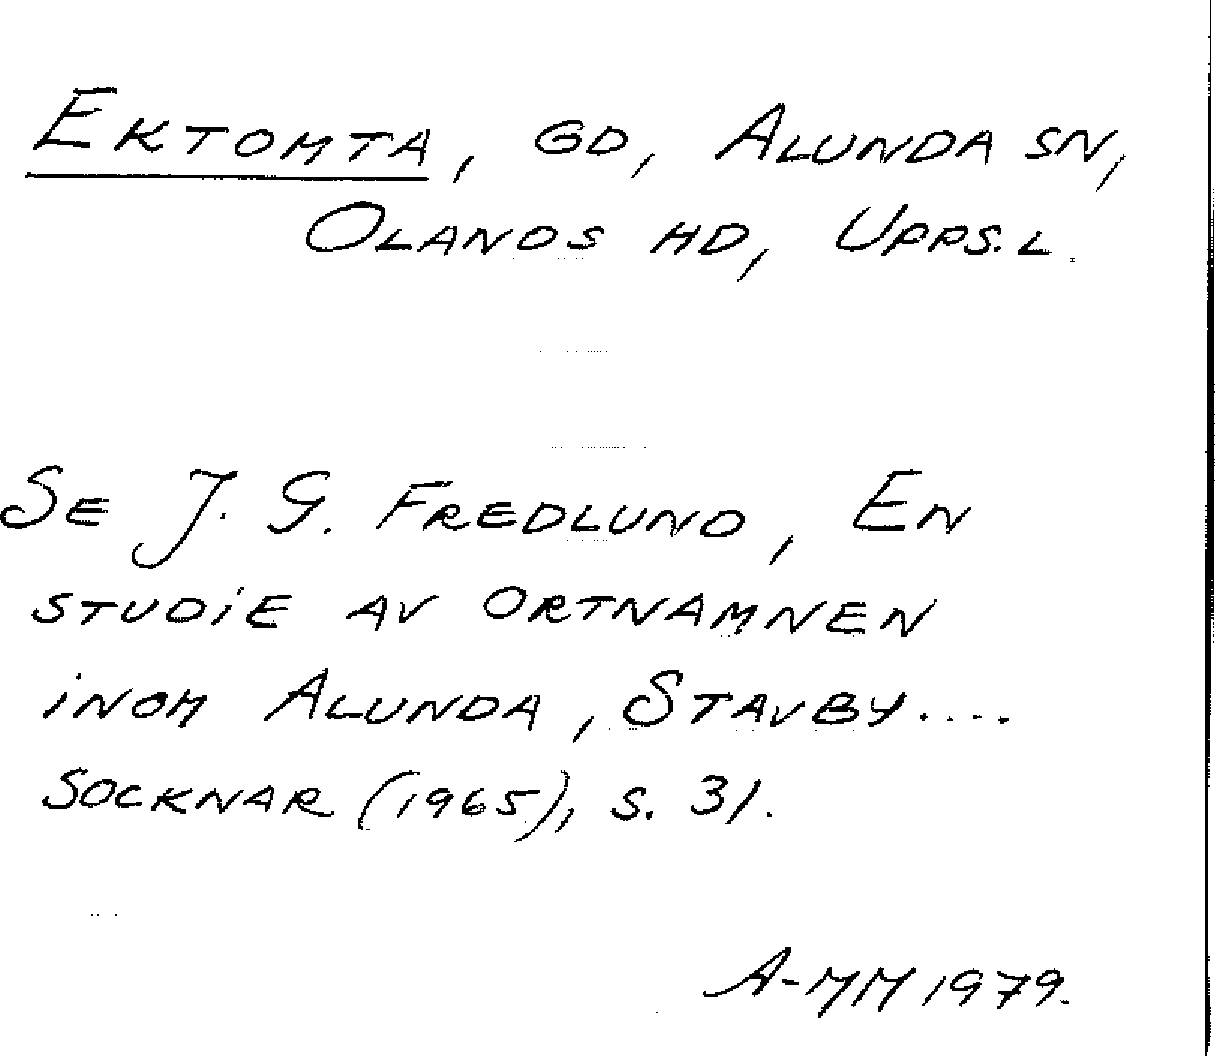 EKTOMTA, GD, ALUNDA SN,
OLANDS HD, UPPS.L.
SE J. G. FREDLUND, EN
STUDIE AV ORTNAMNEN
INOM ALUNDA, STAVBY....
SOCKNAR (1965), S. 31.
A-MM 1979.